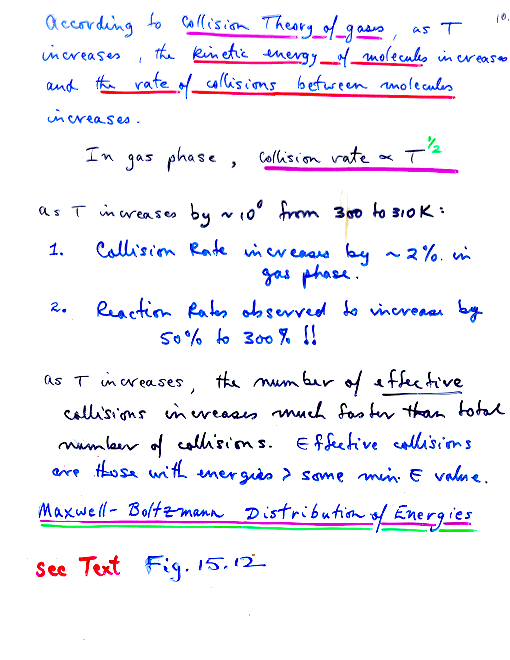 10.
According to Collision Theory of gases, as T
increases, the kinetic energy of molecules increases
and the rate of collisions between molecules
increases.
In gas phase, Collision rate ∝ T^1/2
as T increases by ~10° from 300 to 310K:
1. Collision Rate increases by ~2% in
gas phase.
2. Reaction Rates observed to increase by
50% to 300% !!
as T increases, the number of effective
collisions increases much faster than total
number of collisions. Effective collisions
are those with energies > some min. E value.
Maxwell-Boltzmann Distribution of Energies
See Text Fig. 15.12